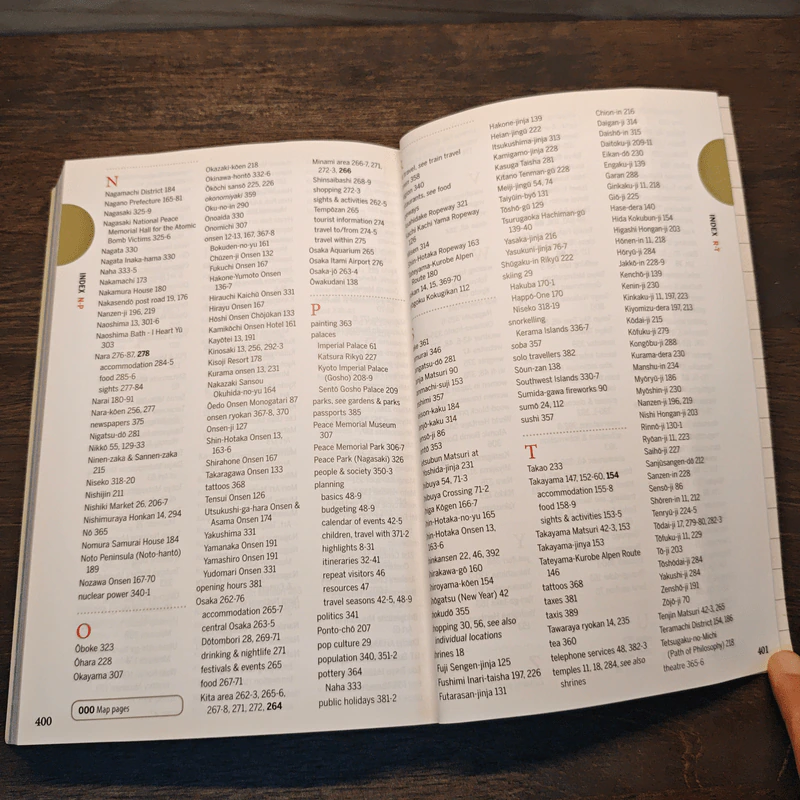 N
Nagamachi District 184
Nagano Prefecture 165-81
Nagasaki 325-9
Nagasaki National Peace
Memorial Hall for the Atomic
Bomb Victims 325-6
Nagata 330
Nagata Inaka-hama 330
Naha 333-5
Nakamachi 173
Nakamura House 180
Nakasendō post road 19, 176
Nanzen-ji 196, 219
Naoshima 13, 301-6
Naoshima Bath - I Heart Yū
303
Nara 276-87, 278
accommodation 284-5
food 285-6
sights 277-84
Narai 180-91
Nara-kōen 256, 277
newspapers 375
Nigatsu-dō 281
Nikkō 55, 129-33
Ninen-zaka & Sannen-zaka
215
Niseko 318-20
Nishijin 211
Nishiki Market 26, 206-7
Nishimuraya Honkan 14, 294
Nō 365
Nomura Samurai House 184
Noto Peninsula (Noto-hantō)
189
Nozawa Onsen 167-70
nuclear power 340-1
O
Ōboke 323
Ōhara 228
Okayama 307
000 Map pages
400
INDEX N-P
Okazaki-kōen 218
Okinawa-hontō 332-6
Ōkōchi sansō 225, 226
okonomiyaki 359
Oku-no-in 290
Onoaida 330
Onomichi 307
onsen 12-13, 167, 367-8
Bokuden-no-yu 161
Chūzen-ji Onsen 132
Fukuchi Onsen 167
Hakone-Yumoto Onsen
136-7
Hirauchi Kaichū Onsen 331
Hirayu Onsen 167
Hōshi Onsen Chōjūkan 133
Kamikōchi Onsen Hotel 161
Kayōtei 13, 191
Kinosaki 13, 256, 292-3
Kisoji Resort 178
Kurama onsen 13, 231
Nakazaki Sansou
Okuhida-no-yu 164
Ōedo Onsen Monogatari 87
onsen ryokan 367-8, 370
Onsen-ji 127
Shin-Hotaka Onsen 13,
163-6
Shirahone Onsen 167
Takaragawa Onsen 133
tattoos 368
Tensui Onsen 126
Utsukushi-ga-hara Onsen &
Asama Onsen 174
Yakushima 331
Yamanaka Onsen 191
Yamashiro Onsen 191
Yudomari Onsen 331
opening hours 381
Osaka 262-76
accommodation 265-7
central Osaka 263-5
Dōtombori 28, 269-71
drinking & nightlife 271
festivals & events 265
food 267-71
Kita area 262-3, 265-6,
267-8, 271, 272, 264
Minami area 266-7, 271,
272-3, 266
Shinsaibashi 268-9
shopping 272-3
sights & activities 262-5
Tempōzan 265
tourist information 274
travel to/from 274-5
travel within 275
Osaka Aquarium 265
Osaka Itami Airport 276
Osaka-jō 263-4
Ōwakudani 138
P
painting 363
palaces
Imperial Palace 61
Katsura Rikyū 227
Kyoto Imperial Palace
(Gosho) 208-9
Sentō Gosho Palace 209
parks, see gardens & parks
passports 385
Peace Memorial Museum
307
Peace Memorial Park 306-7
Peace Park (Nagasaki) 326
people & society 350-3
planning
basics 48-9
budgeting 48-9
calendar of events 42-5
children, travel with 371-2
highlights 8-31
itineraries 32-41
repeat visitors 46
resources 47
travel seasons 42-5, 48-9
politics 341
Ponto-chō 207
pop culture 29
population 340, 351-2
pottery 364
Naha 333
public holidays 381-2
travel, see train travel
358
340
see food
Ropeway 321
Kachi Kachi Yama Ropeway
126
314
Shin-Hotaka Ropeway 163
Tateyama-Kurobe Alpen
Route 180
14, 15, 369-70
Kokugikan 112
361
346
281
Matsuri 90
153
357
184
314
86
353
Setsubun Matsuri at
Yoshida-jinja 231
Shibuya 54, 71-3
Shibuya Crossing 71-2
Shiga Kōgen 166-7
Shin-Hotaka-no-yu 165
Shin-Hotaka Onsen 13,
163-6
shinkansen 22, 46, 392
Shirakawa-gō 160
Shiroyama-kōen 154
Shōgatsu (New Year) 42
Shokudō 355
shopping 30, 56, see also
individual locations
shrines 18
Fuji Sengen-jinja 125
Fushimi Inari-taisha 197, 226
Futarasan-jinja 131
Hakone-jinja 139
Heian-jingū 222
Itsukushima-jinja 313
Kamigamo-jinja 228
Kasuga Taisha 281
Kitano Tenman-gū 228
Meiji-jingū 54, 74
Taiyūin-byō 131
Tōshō-gū 129
Tsurugaoka Hachiman-gū
139-40
Yasaka-jinja 216
Yasukuni-jinja 76-7
Shūgaku-in Rikyū 222
skiing 29
Hakuba 170-1
Happō-One 170
Niseko 318-19
snorkelling
Kerama Islands 336-7
soba 357
solo travellers 382
Sōun-zan 138
Southwest Islands 330-7
Sumida-gawa fireworks 90
sumō 24, 112
sushi 357
T
Takao 233
Takayama 147, 152-60, 154
accommodation 155-8
food 158-9
sights & activities 153-5
Takayama Matsuri 42-3, 153
Takayama-jinya 153
Tateyama-Kurobe Alpen Route
146
tattoos 368
taxes 381
taxis 389
Tawaraya ryokan 14, 235
tea 360
telephone services 48, 382-3
temples 11, 18, 284, see also
shrines
Chion-in 216
Daigan-ji 314
Daishō-in 315
Daitoku-ji 209-11
Eikan-dō 230
Engaku-ji 139
Garan 288
Ginkaku-ji 11, 218
Giō-ji 225
Hase-dera 140
Hida Kokubun-ji 154
Higashi Hongan-ji 203
Hōnen-in 11, 218
Hōryū-ji 284
Jakkō-in 228-9
Kenchō-ji 139
Kenin-ji 230
Kinkaku-ji 11, 197, 223
Kiyomizu-dera 197, 213
Kōdai-ji 215
Kōfuku-ji 279
Kongōbu-ji 288
Kurama-dera 230
Manshu-in 234
Myōryū-ji 186
Myōshin-ji 230
Nanzen-ji 196, 219
Nishi Hongan-ji 203
Rinnō-ji 130-1
Ryōan-ji 11, 223
Saihō-ji 227
Sanjūsangen-dō 212
Sanzen-in 228
Sensō-ji 86
Shōren-in 11, 212
Tenryū-ji 224-5
Tōdai-ji 17, 279-80, 282-3
Tōfuku-ji 11, 229
Tō-ji 203
Tōshōdai-ji 284
Yakushi-ji 284
Zenshō-ji 191
Zōjō-ji 70
Tenjin Matsuri 42-3, 265
Teramachi District 154, 186
Tetsugaku-no-Michi
(Path of Philosophy) 218
theatre 365-6
INDEX R-T
401